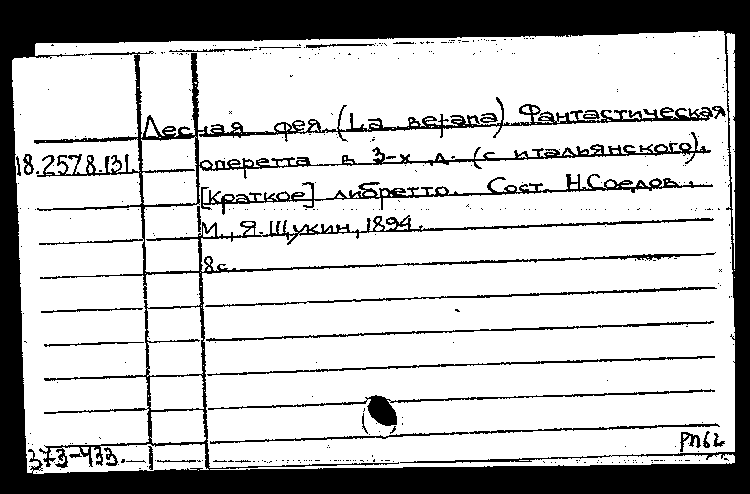 Лесная фея (La Befana) Фантастическая
18.2578.131. оперетта в 3-х д. (с итальянского).
[Краткое] либретто. Сост. Н.Соедов.
М., Я.Щукин, 1894.
8с.
373-433.